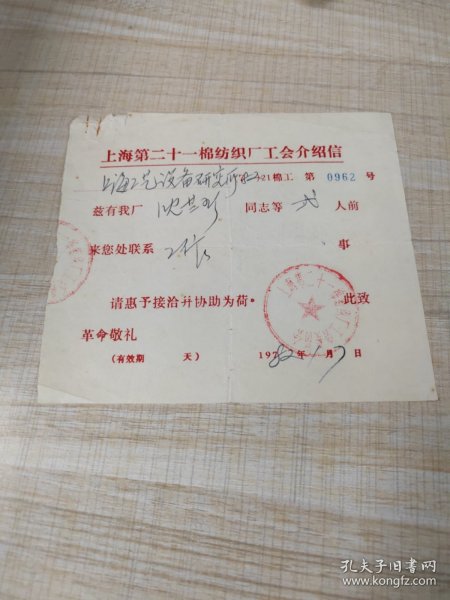 上海第二十一棉纺织厂工会介绍信
上海工艺设备研究所 21棉工 第 0962 号
兹有我厂 同志等 弍 人前
来您处联系 工作 事
请惠予接洽并协助为荷。 此致
革命敬礼
(有效期 天) 1982年1月7日
上海第二十一棉纺织厂工会
孔夫子旧书网
www.kongfz.com